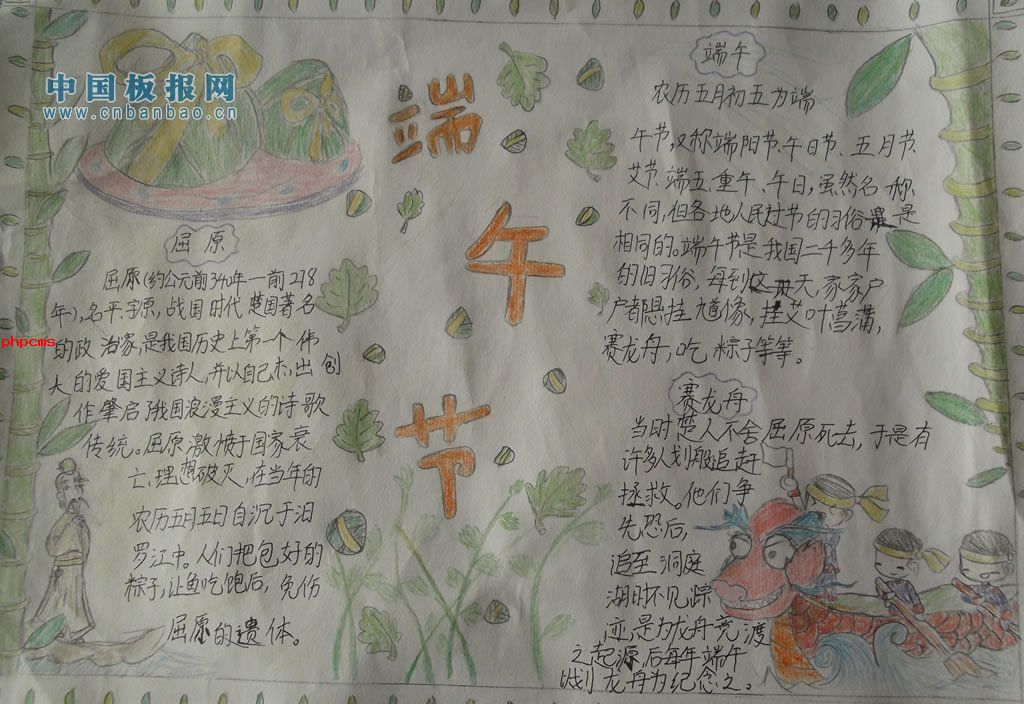 中国板报网
www.cnbanbao.cn
phpcms
端午节
屈原
屈原(约公元前340年一前278
年),名平,字原,战国时代楚国著名
的政治家,是我国历史上第一个伟
大的爱国主义诗人,并以自己杰出创
作肇启了我国浪漫主义的诗歌
传统。屈原激愤于国家衰
亡,理想破灭,在当年的
农历五月五日自沉于汨
罗江中。人们把包好的
粽子,让鱼吃饱后,免伤
屈原的遗体。
端午
农历五月初五为端
午节,又称端阳节、午日节、五月节、
艾节、端五、重午、午日,虽然名称
不同,但各地人民过节的习俗是
相同的。端午节是我国二千多年
的旧习俗,每到这天,家家户
户都悬挂馗像,挂艾叶菖蒲,
赛龙舟,吃粽子等等。
赛龙舟
当时楚人不舍屈原死去,于是有
许多人划船追赶
拯救。他们争
先恐后,
追至洞庭
湖时不见踪
迹,是为龙舟竞渡
之起源,后每年端午
划龙舟为纪念之。